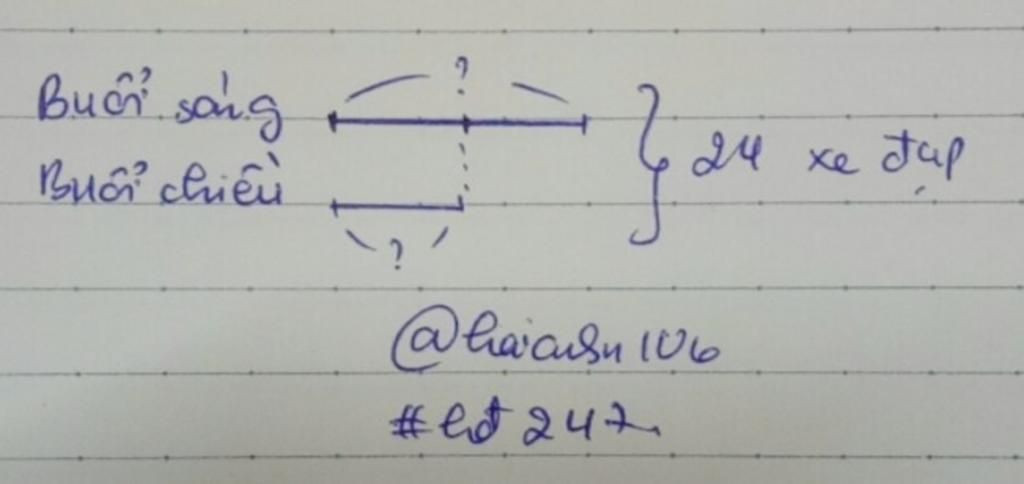 ?
Buổi sáng
24 xe đạp
Buổi chiều
?
@haianh106
#hđ247